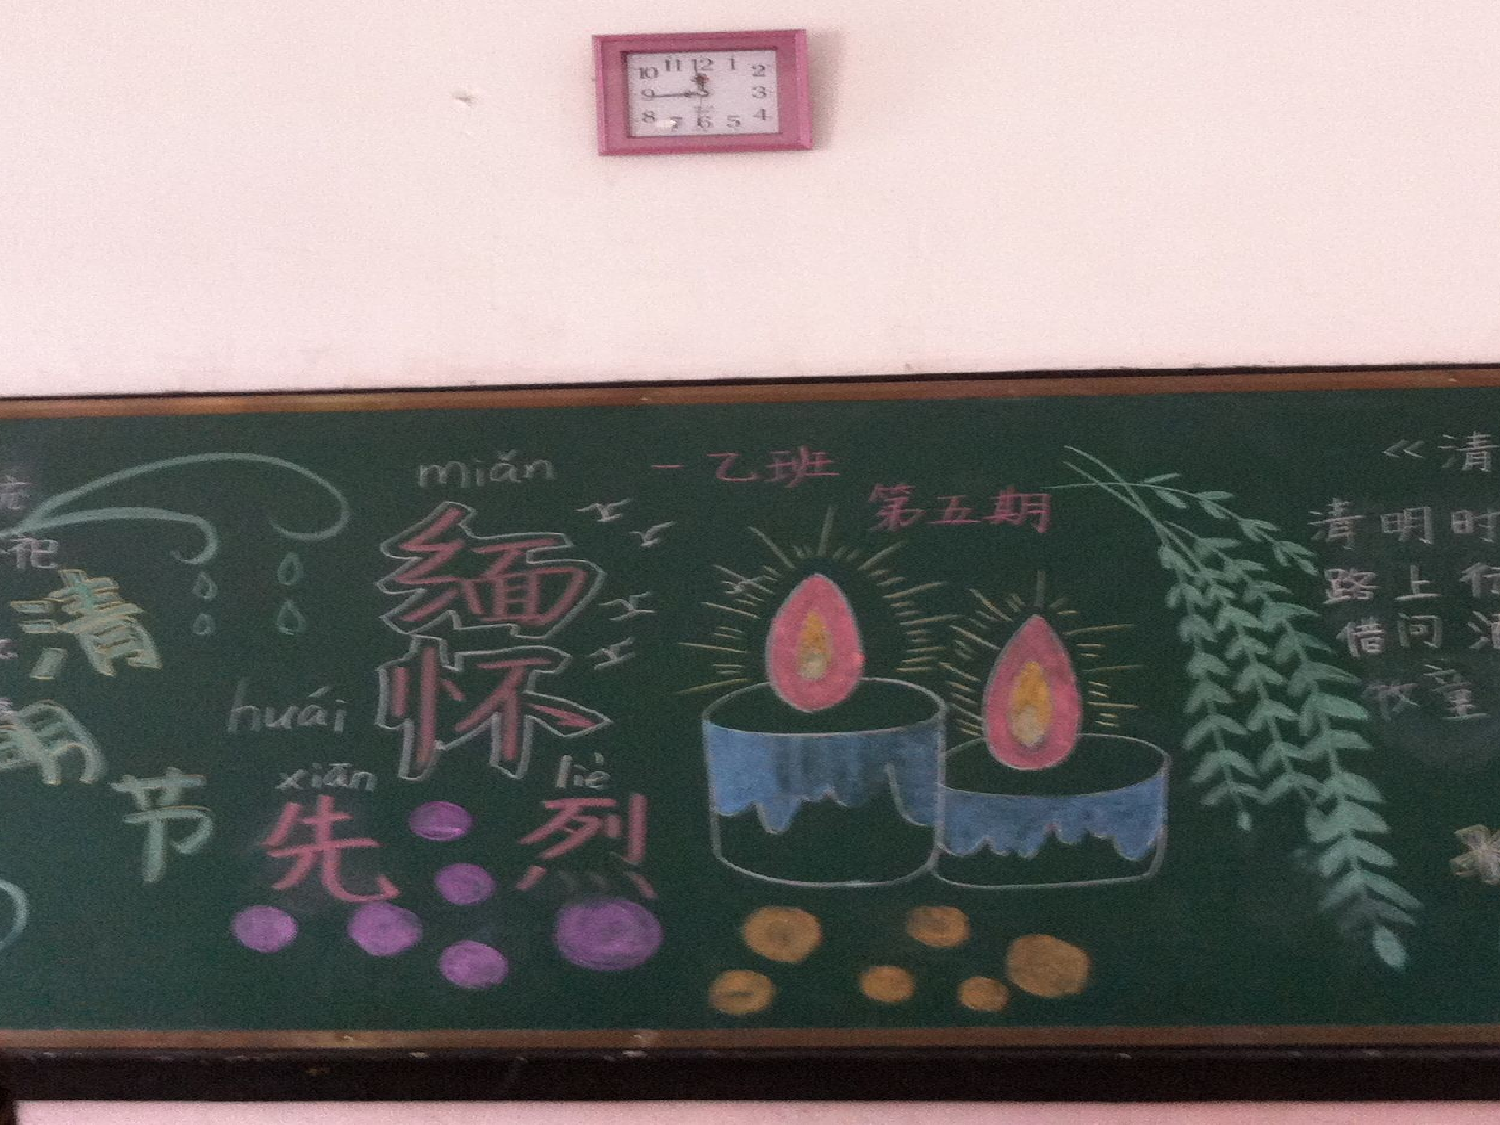 10 11 12 1 2
9 3
8 7 6 5 4
祀
清
明
节
miǎn
缅
怀
huái
xiān
liè
先 烈
一乙班
第五期
《清
清明时
路上行
借问酒
牧童